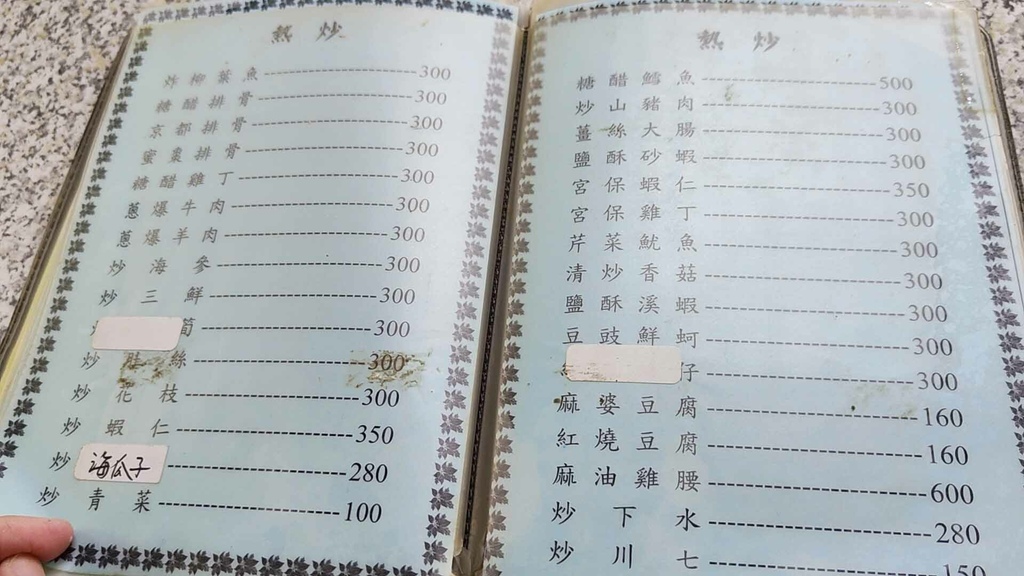 熱炒
炸柳葉魚----------300
糖醋排骨----------300
京都排骨----------300
蜜棗排骨----------300
糖醋雞丁----------300
蔥爆牛肉----------300
蔥爆羊肉----------300
炒海參----------300
炒三鮮----------300
筍----------300
炒肚絲----------300
炒花枝----------300
炒蝦仁----------350
炒海瓜子----------280
炒青菜----------100
熱炒
糖醋鱈魚----------500
炒山豬肉----------300
薑絲大腸----------300
鹽酥砂蝦----------300
宮保蝦仁----------350
宮保雞丁----------300
芹菜魷魚----------300
清炒香菇----------300
鹽酥溪蝦----------300
豆豉鮮蚵----------300
仔----------300
麻婆豆腐----------160
紅燒豆腐----------160
麻油雞腰----------600
炒下水----------280
炒川七----------150